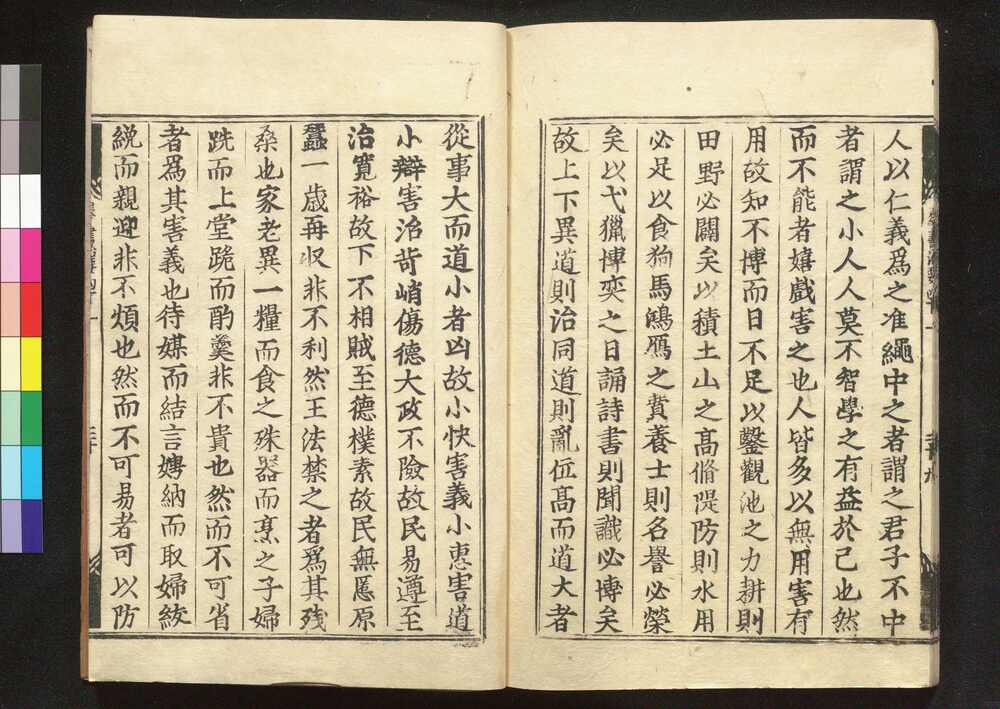 人以仁義爲之准繩中之者謂之君子不中
者謂之小人人莫不智學之有益於己也然
而不能者嬉戲害之也人皆多以無用害有
用故知不博而日不足以鑿觀池之力耕則
田野必闢矣以積土山之髙脩隄防則水用
必足以食狗馬鴻鴈之費養士則名譽必榮
矣以弋獵博奕之日誦詩書則聞識必博矣
故上下異道則治同道則亂位髙而道大者
從事大而道小者凶故小快害義小恵害道
小辯害治苛峭傷德大政不險故民易遵至
治寬裕故下不相賊至德樸素故民無慝原
蠶一歳再収非不利然王法禁之者爲其残
桑也家老異一糧而食之殊器而烹之子婦
跣而上堂跪而酌羹非不貴也然而不可省
者爲其害義也待媒而結言娉納而取婦紋
絻而親迎非不煩也然而不可易者可以防